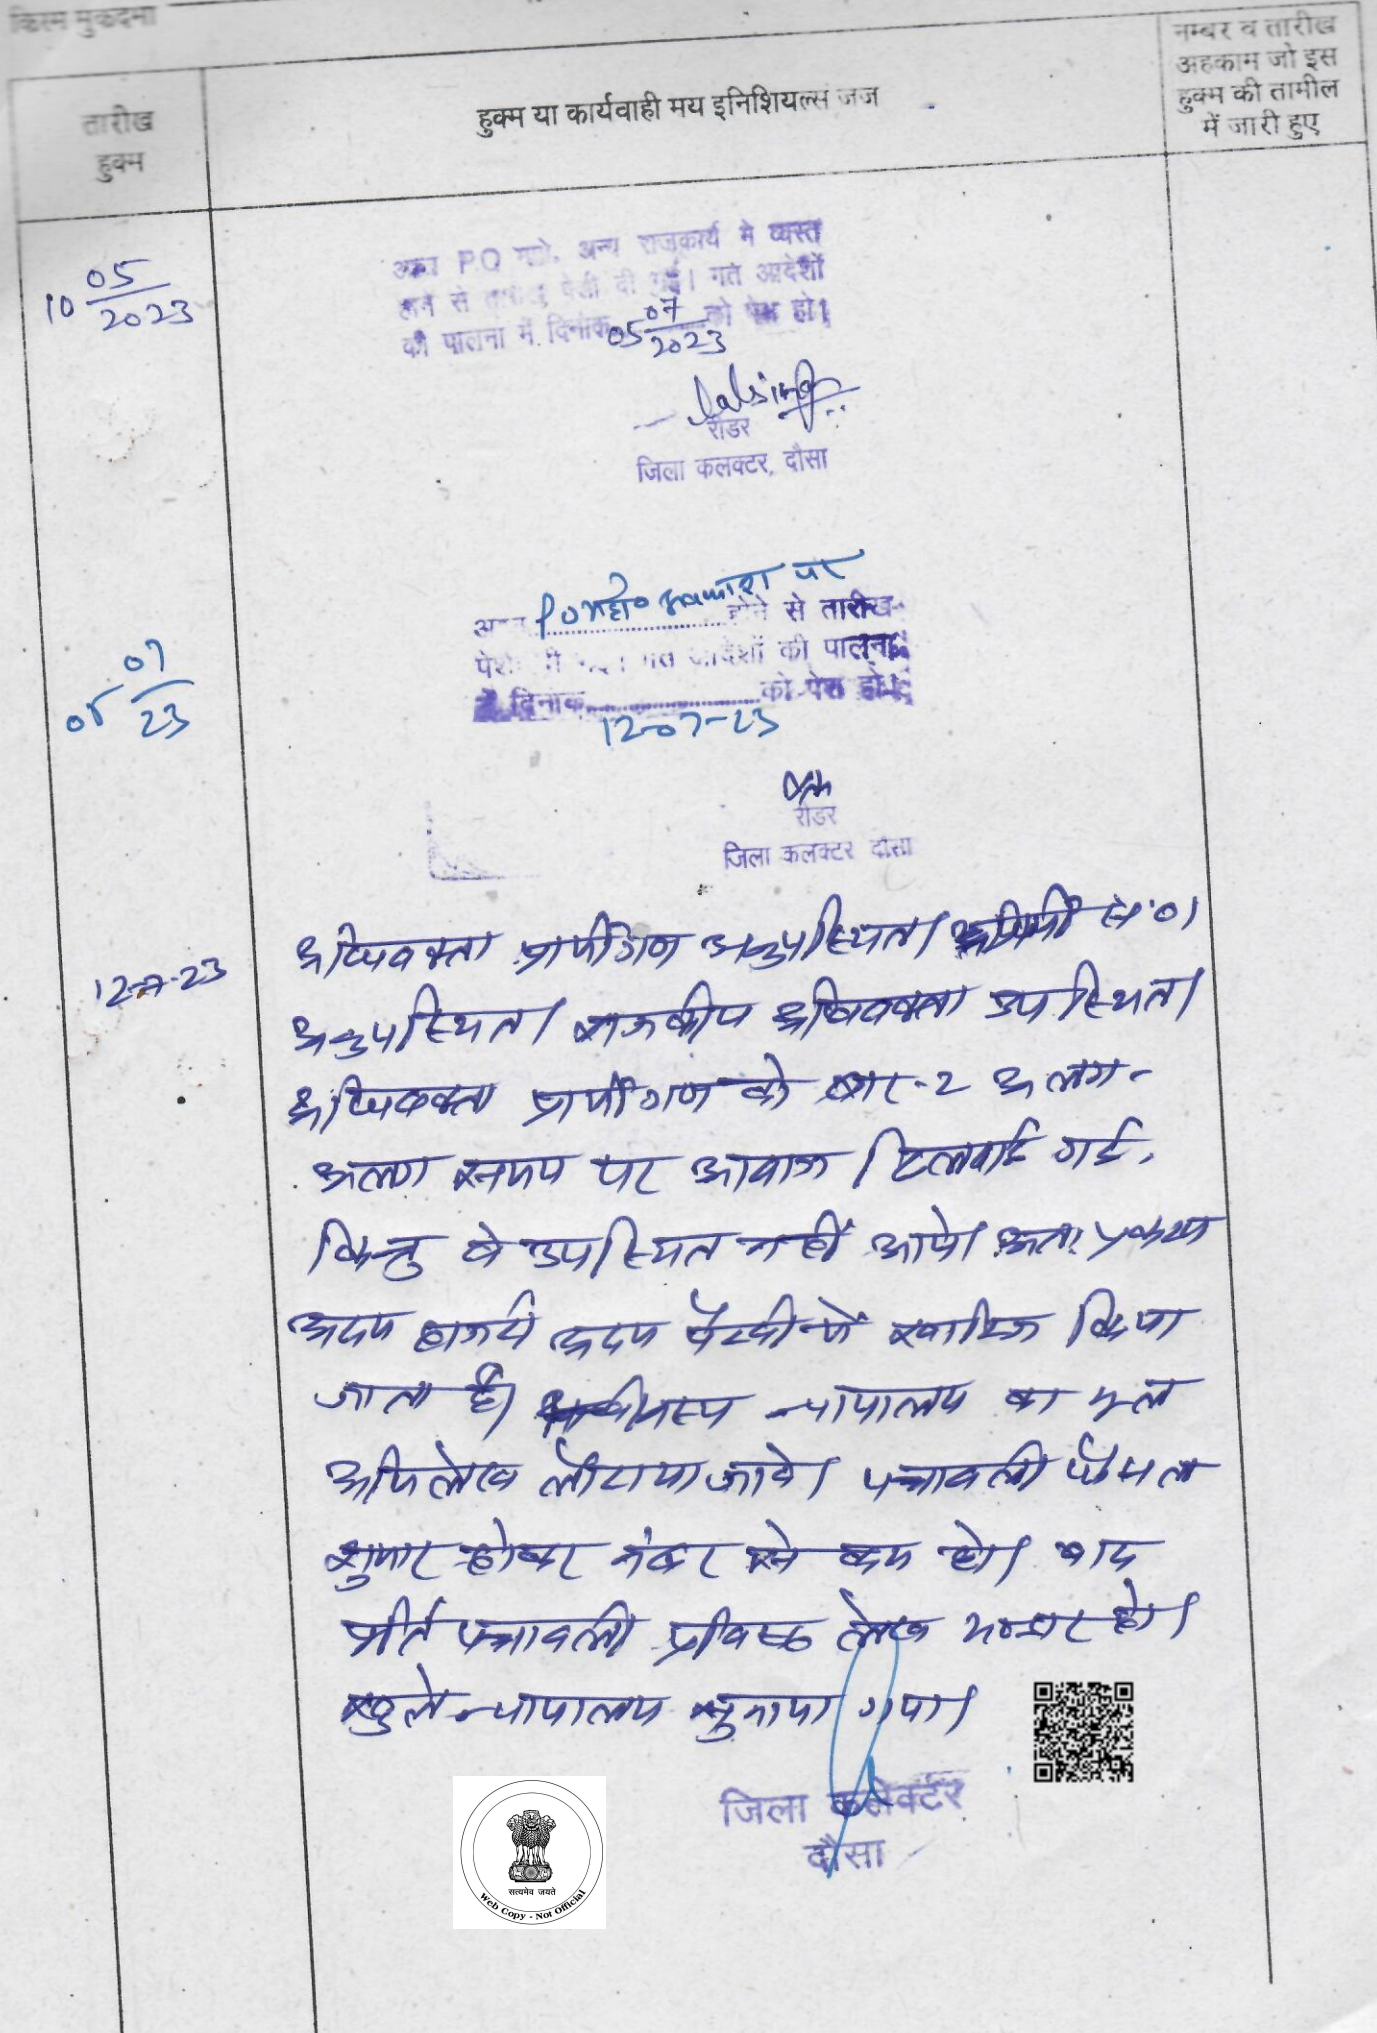 किस्म मुकदमा
तारीख
हुक्म
हुक्म या कार्यवाही मय इनिशियल्स जज
नम्बर व तारीख
अहकाम जो इस
हुक्म की तामील
में जारी हुए
10 05/2023
P.O अन्य राजकार्य मे व्यस्त
होने से तारीख पेशी दी गई। गत आदेशों
की पालना में दिनांक 05 07/2023 को पेश हो।
रीडर
जिला कलक्टर, दौसा
05 07/23
P.O महो० अवकाश पर होने से तारीख
पेशी दी गई। गत आदेशों की पालना
में दिनांक 12-07-23 को पेश हो।
रीडर
जिला कलक्टर दौसा
12-7-23
अधिवक्ता प्रार्थीगण अनुपस्थित। सं० 01
अनुपस्थित। राजकीय अधिवक्ता उपस्थित।
अधिवक्ता प्रार्थीगण को बार-2 अलग-
अलग समय पर आवाज दिलवाई गई,
किन्तु वे उपस्थित नहीं आये। अतः प्रकरण
अदम हाजरी अदम पैरवी में खारिज किया
जाता है। न्यायालय का मूल
अभिलेख लौटाया जावे। पत्रावली फैसल
शुमार होकर नंबर से कम हो। बाद
पूर्ति पत्रावली प्रविष्ठ लेख भण्डार हो।
खुले न्यायालय सुनाया गया।
जिला कलेक्टर
दौसा
सत्यमेव जयते
Web Copy - Not Official